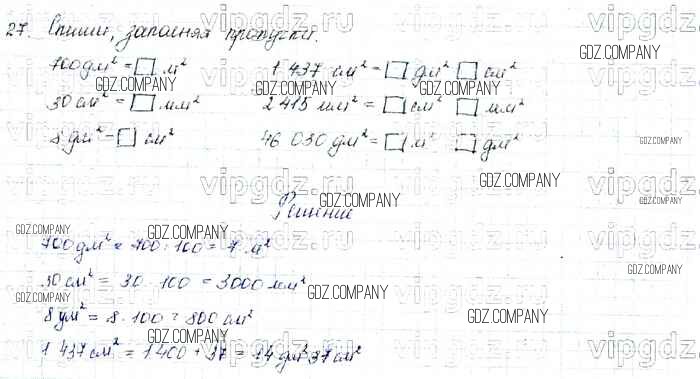 27. Спиши, заполняя пропуски.
700 дм² = □ м² 1 437 см² = □ дм² □ см²
30 см² = □ мм² 2 415 мм² = □ см² □ мм²
8 дм² = □ см² 46 030 дм² = □ м² □ дм²
Решение
700 дм² = 700 : 100 = 7 м²
30 см² = 30 · 100 = 3000 мм²
8 дм² = 8 · 100 = 800 см²
1 437 см² = 1400 + 37 = 14 дм² 37 см²
vipgdz.ru
GDZ.COMPANY